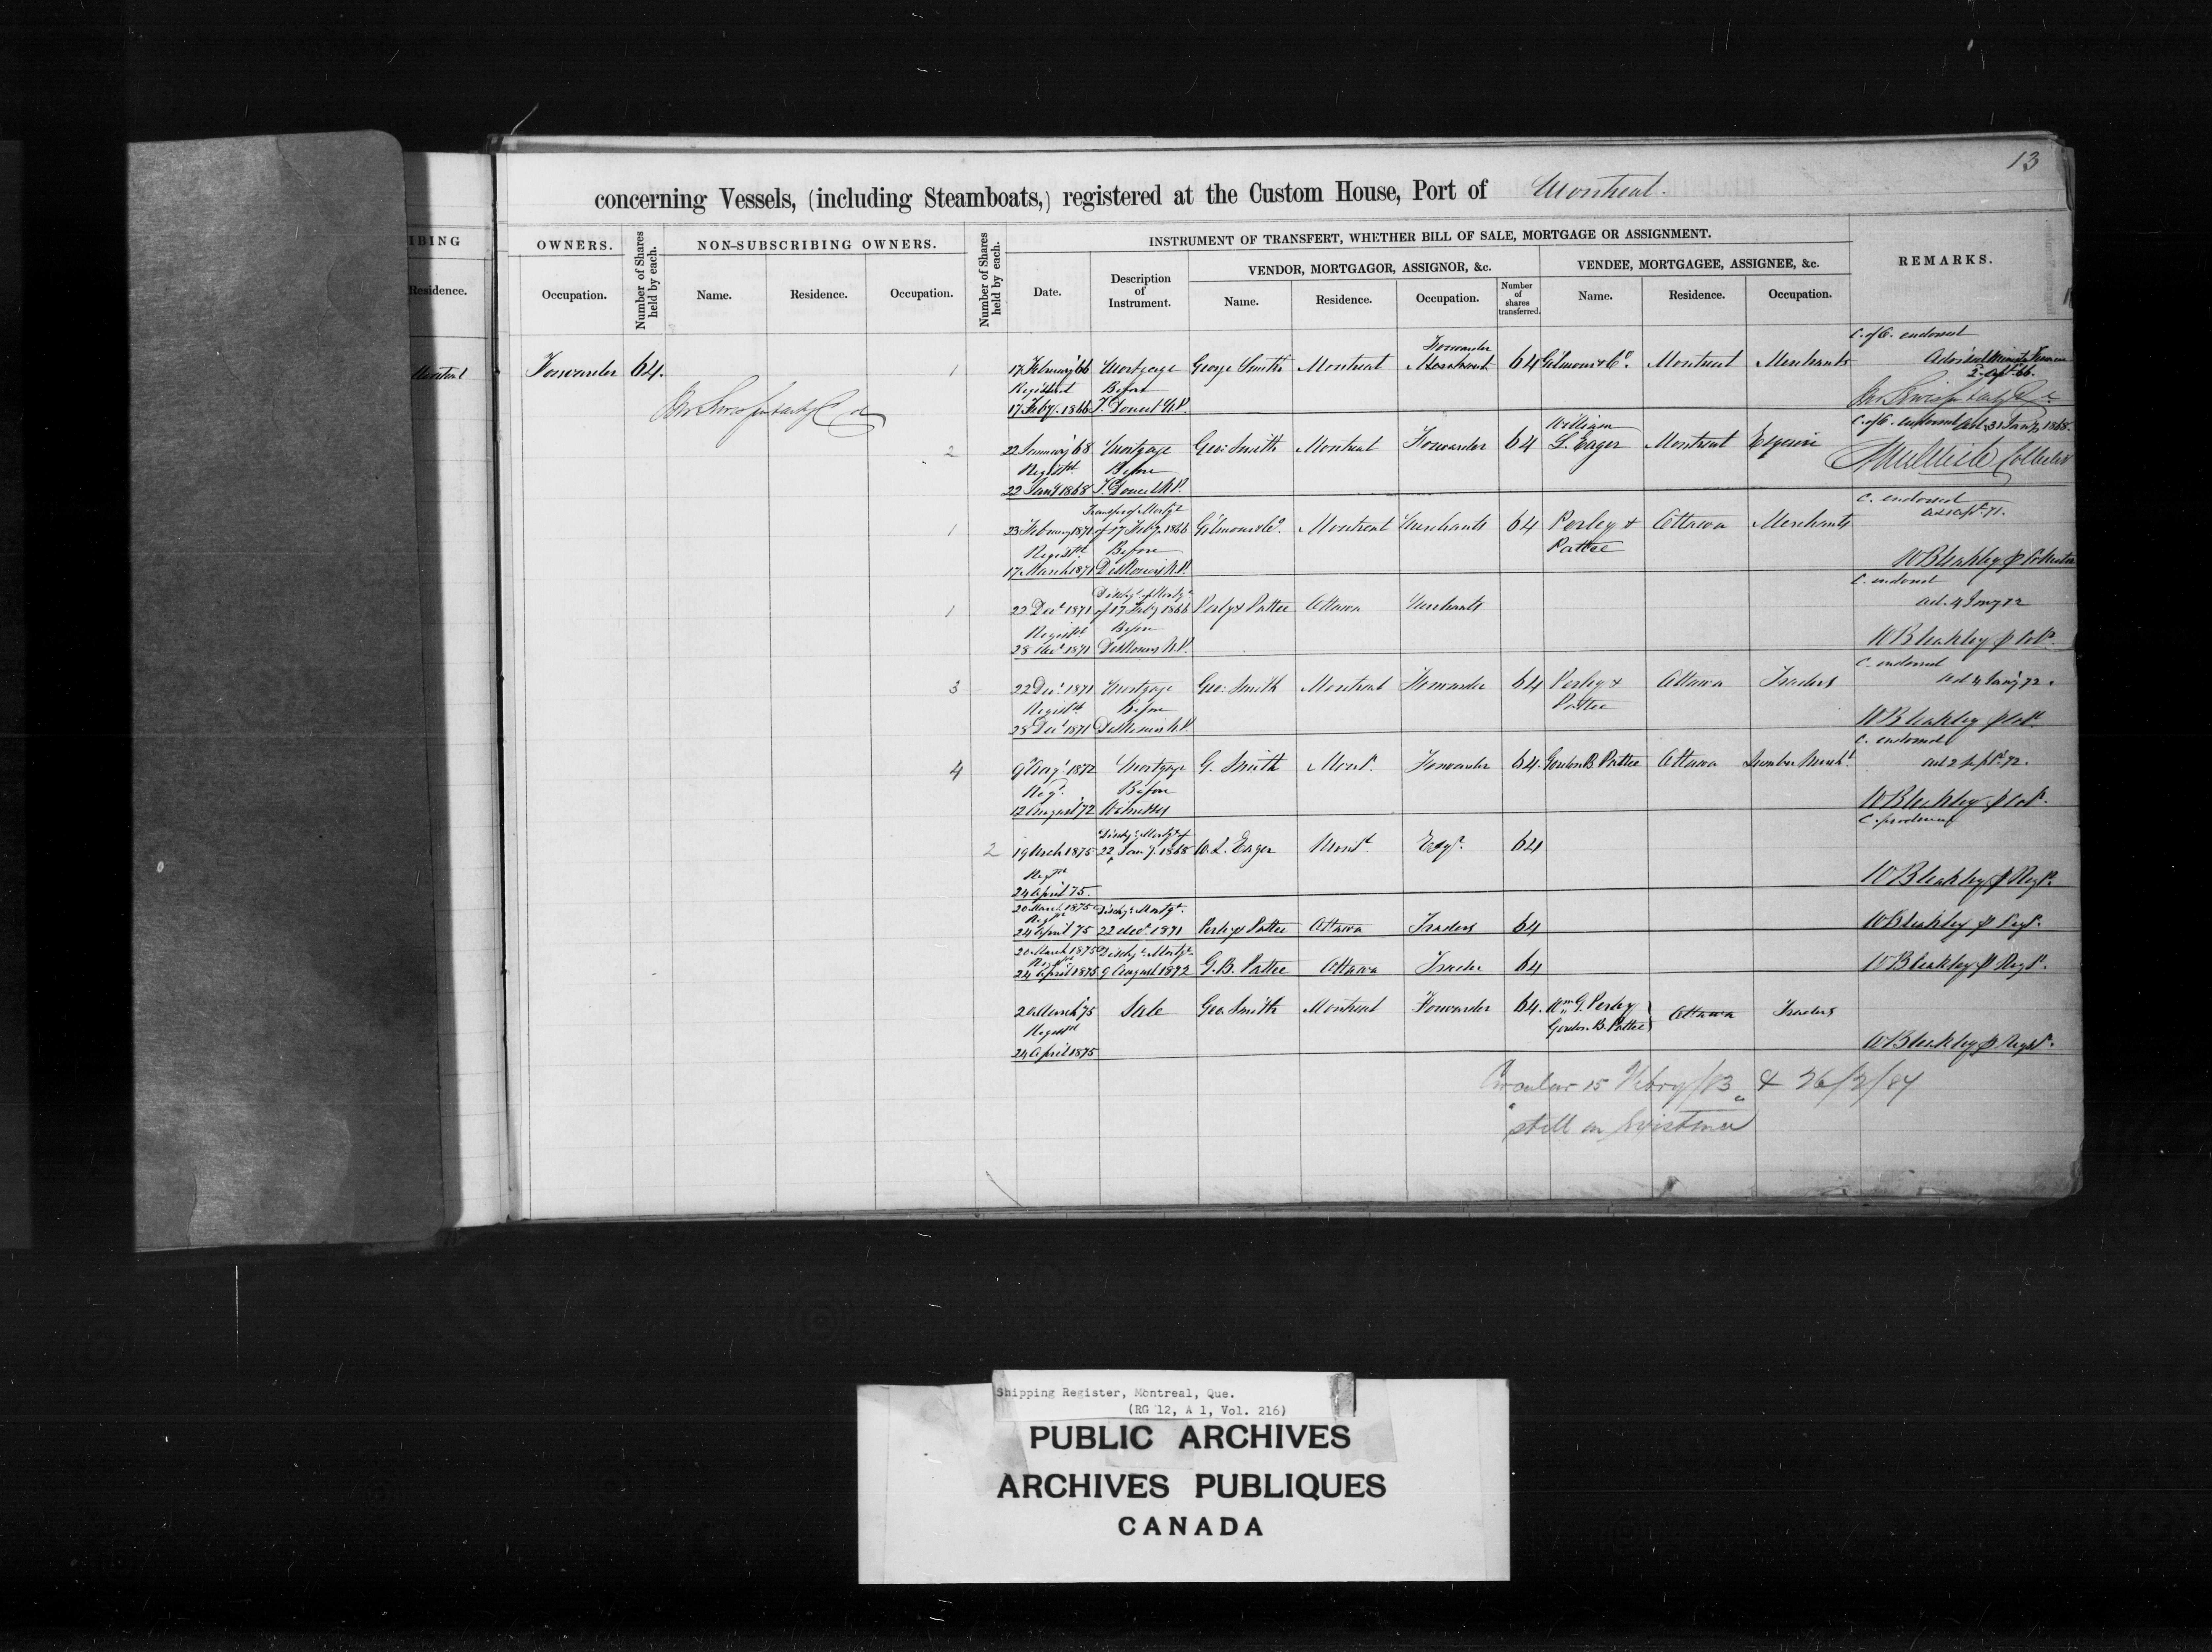 13
concerning Vessels, (including Steamboats,) registered at the Custom House, Port of Montreal.
IBING
OWNERS.
Number of Shares held by each.
NON-SUBSCRIBING OWNERS.
Number of Shares held by each.
INSTRUMENT OF TRANSFERT, WHETHER BILL OF SALE, MORTGAGE OR ASSIGNMENT.
REMARKS.
VENDOR, MORTGAGOR, ASSIGNOR, &c.
VENDEE, MORTGAGEE, ASSIGNEE, &c.
Residence.
Occupation.
Name.
Residence.
Occupation.
Date.
Description of Instrument.
Name.
Residence.
Occupation.
Number of shares transferred.
Name.
Residence.
Occupation.
C. of C. endorsed
Forwarder
Montreal Forwarder 64. 1 17 February '66 Mortgage George Smith Montreal Merchant 64 Gilmour & Co. Montreal Merchants
Registered Before
17 Feby. 1866 T. Doucet N.P.
William
C. of C. endorsed 1868.
2 22 January '68 Mortgage Geo: Smith Montreal Forwarder 64 L. Eager Montreal Esquire
Registd. Before
Collector
22 Jany 1868 T. Doucet N.P.
C. endorsed
Transfer of Mortge
1 23 February 1871 of 17 Feby. 1866 Gilmour & Co. Montreal Merchants 64 Perley & Ottawa Merchants
Registd. Before Pattee
17 March 1871 N.P. W Bleakley p Collector
C. endorsed
Dischge of Mortge
1 22 Decr 1871 of 17 Feby 1866 Perley & Pattee Ottawa Merchants
ad. 4 Jany 72
Registd. Before
28 Decr 1871 N.P. W Bleakley p Colr.
C. endorsed
3 22 Decr. 1871 Mortgage Geo: Smith Montreal Forwarder 64 Perley & Ottawa Traders ad 4 Jany 72.
Registd Before Pattee
28 Decr 1871 N.P. W Bleakley p Colr.
C. endorsed
4 9 Augt 1872 Mortgage G. Smith Montl. Forwarder 64 Gordon B. Pattee Ottawa Lumber Mercht. ad 2 Sept. 72.
Regd. Before
12 August '72 Witnesses W Bleakley p Colr.
Dischge Mortge of
2 19 Mch 1875 22 Jany. 1868 W. L. Eager Montl. Esqr. 64
Regd
24 April 75. W Bleakley p Regr.
20 March 1875 Dischge Mortge.
Regd
24 April 75 22 Decr. 1871 Perley & Pattee Ottawa Traders 64 W Bleakley p Regr.
20 March 1875 Dischge Mortge
Regd
24 April 1875 9 August 1872 G. B. Pattee Ottawa Trader 64 W Bleakley p Regr.
20 March '75 Sale Geo. Smith Montreal Forwarder 64. Wm G. Perley
Gordon B. Pattee Ottawa Traders
Registd
24 April 1875 W Bleakley p Regstr.
Circular 15 Febry/83 & 26/2/84
"still in Existence"
Shipping Register, Montreal, Que.
(RG 12, A 1, Vol. 216)
PUBLIC ARCHIVES
ARCHIVES PUBLIQUES
CANADA